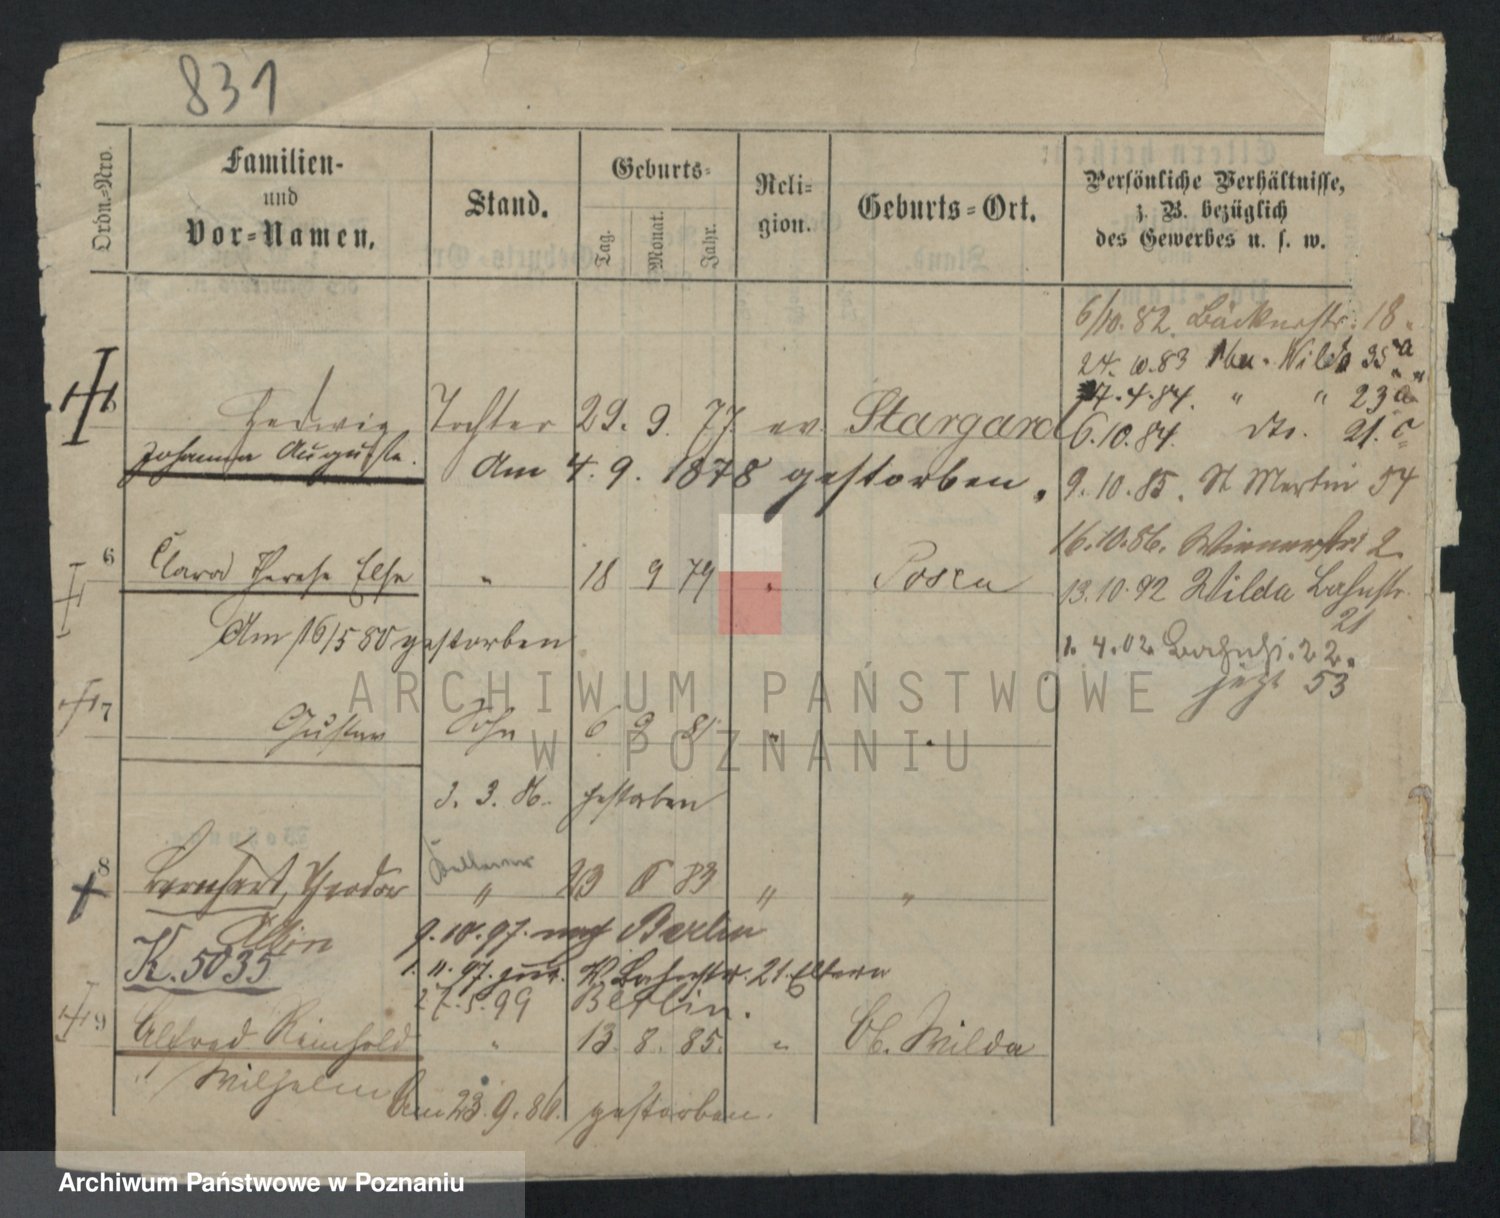 831
Ordn.-Nro.
Familien-
und
Vor-Namen.
Stand.
Geburts-
Tag. Monat. Jahr.
Reli-
gion.
Geburts-Ort.
Persönliche Verhältnisse,
z. B. bezüglich
des Gewerbes u. s. w.
6/10. 82. Bäckerstr. 18.
24. 10. 83 Wilda 35a
17. 4. 84. " " 23a
5 Hedwig Tochter 29. 9. 77. ev. Stargard
6. 10. 84. dto. 21. c
Johanna Auguste.
Am 4. 9. 1878 gestorben.
9. 10. 85. St Martin 54
16. 10. 86. Wienerstr. 2
6 Clara Therese Else " 18 9 79 " Posen
13. 10. 92 Wilda Bahnstr.
21
Am 16/5 80 gestorben
1. 4. 02 Bahnstr. 22.
jetzt 53
7 Gustav Sohn 6 9 81 "
3. 3. 86. gestorben
8 Bernhart, Theodor " 23 6 83 " "
Albin
9. 10. 97. nach Berlin
K. 5035
1. 11. 97. zur. W. Bahnstr. 21. Eltern
27. 5. 99 Berlin.
9 Alfred Reinhold " 13. 8. 85. " Ob. Wilda
Wilhelm
Am 23. 9. 86. gestorben.
ARCHIWUM PAŃSTWOWE
W POZNANIU
Archiwum Państwowe w Poznaniu